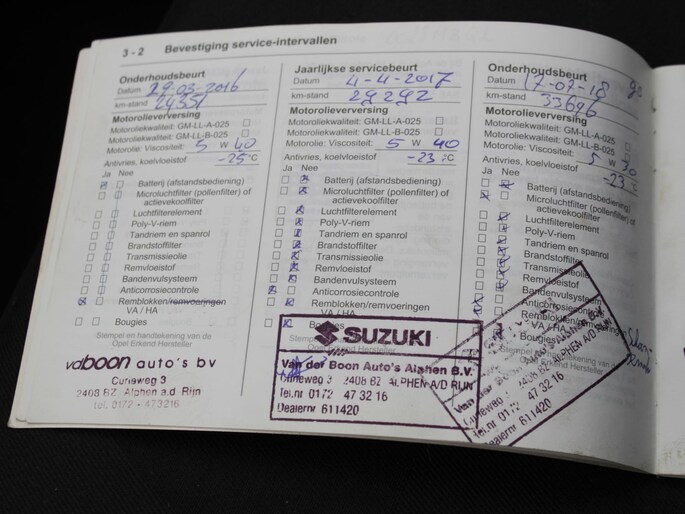 3 - 2 Bevestiging service-intervallen
Onderhoudsbeurt
Datum 29-03-2016
km-stand 24351
Motorolieverversing
Motoroliekwaliteit: GM-LL-A-025
GM-LL-B-025
Motorolie: Viscositeit: 5 W 40
Antivries, koelvloeistof -25 °C
Ja Nee
Batterij (afstandsbediening)
Microluchtfilter (pollenfilter) of
actievekoolfilter
Luchtfilterelement
Poly-V-riem
Tandriem en spanrol
Brandstoffilter
Transmissieolie
Remvloeistof
Bandenvulsysteem
Anticorrosiecontrole
Remblokken/remvoeringen
VA / HA
Bougies
Stempel en handtekening van de
Opel Erkend Hersteller
vdboon auto's bv
Curieweg 3
2408 BZ Alphen a.d. Rijn
tel. 0172 - 473216
Jaarlijkse servicebeurt
Datum 4-4-2017
km-stand 29292
Motorolieverversing
Motoroliekwaliteit: GM-LL-A-025
GM-LL-B-025
Motorolie: Viscositeit: 5 W 40
Antivries, koelvloeistof -23 °C
Ja Nee
Batterij (afstandsbediening)
Microluchtfilter (pollenfilter) of
actievekoolfilter
Luchtfilterelement
Poly-V-riem
Tandriem en spanrol
Brandstoffilter
Transmissieolie
Remvloeistof
Bandenvulsysteem
Anticorrosiecontrole
Remblokken/remvoeringen
VA / HA
Bougies
SUZUKI
Van der Boon Auto's Alphen B.V.
Curieweg 3 2408 BZ ALPHEN A/D RIJN
Tel.nr 0172 47 32 16
Dealernr 611420
Onderhoudsbeurt
Datum 17-07-18
km-stand 33696
Motorolieverversing
Motoroliekwaliteit: GM-LL-A-025
GM-LL-B-025
Motorolie: Viscositeit: 5 W 30
Antivries, koelvloeistof -23 °C
Ja Nee
Batterij (afstandsbediening)
Microluchtfilter (pollenfilter) of
actievekoolfilter
Luchtfilterelement
Poly-V-riem
Tandriem en spanrol
Brandstoffilter
Transmissieolie
Remvloeistof
Bandenvulsysteem
Anticorrosiecontrole
Remblokken/remvoeringen
VA / HA
Bougies
Van der Boon
Curieweg 3 2408 BZ ALPHEN A/D RIJN
Tel.nr 0172 47 32 16
Dealernr 611420